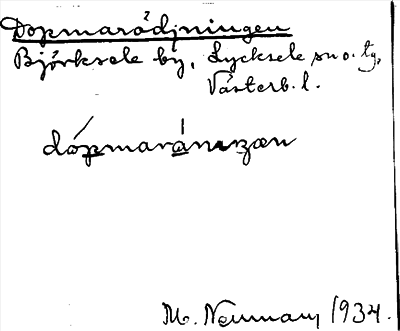 Dopmarådjningen
Björksele by, Lycksele sn o. tg,
Västerb. l.
M. Neuman, 1934.